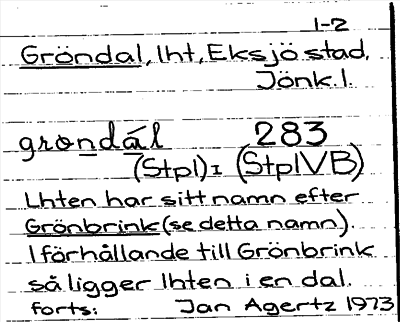 1-2
Gröndal, lht, Eksjö stad,
Jönk.l.
grondál 283
(Stpl)I (StplVB)
Lhten har sitt namn efter
Grönbrink (se detta namn).
I förhållande till Grönbrink
så ligger lhten i en dal.
forts: Jan Agertz 1973